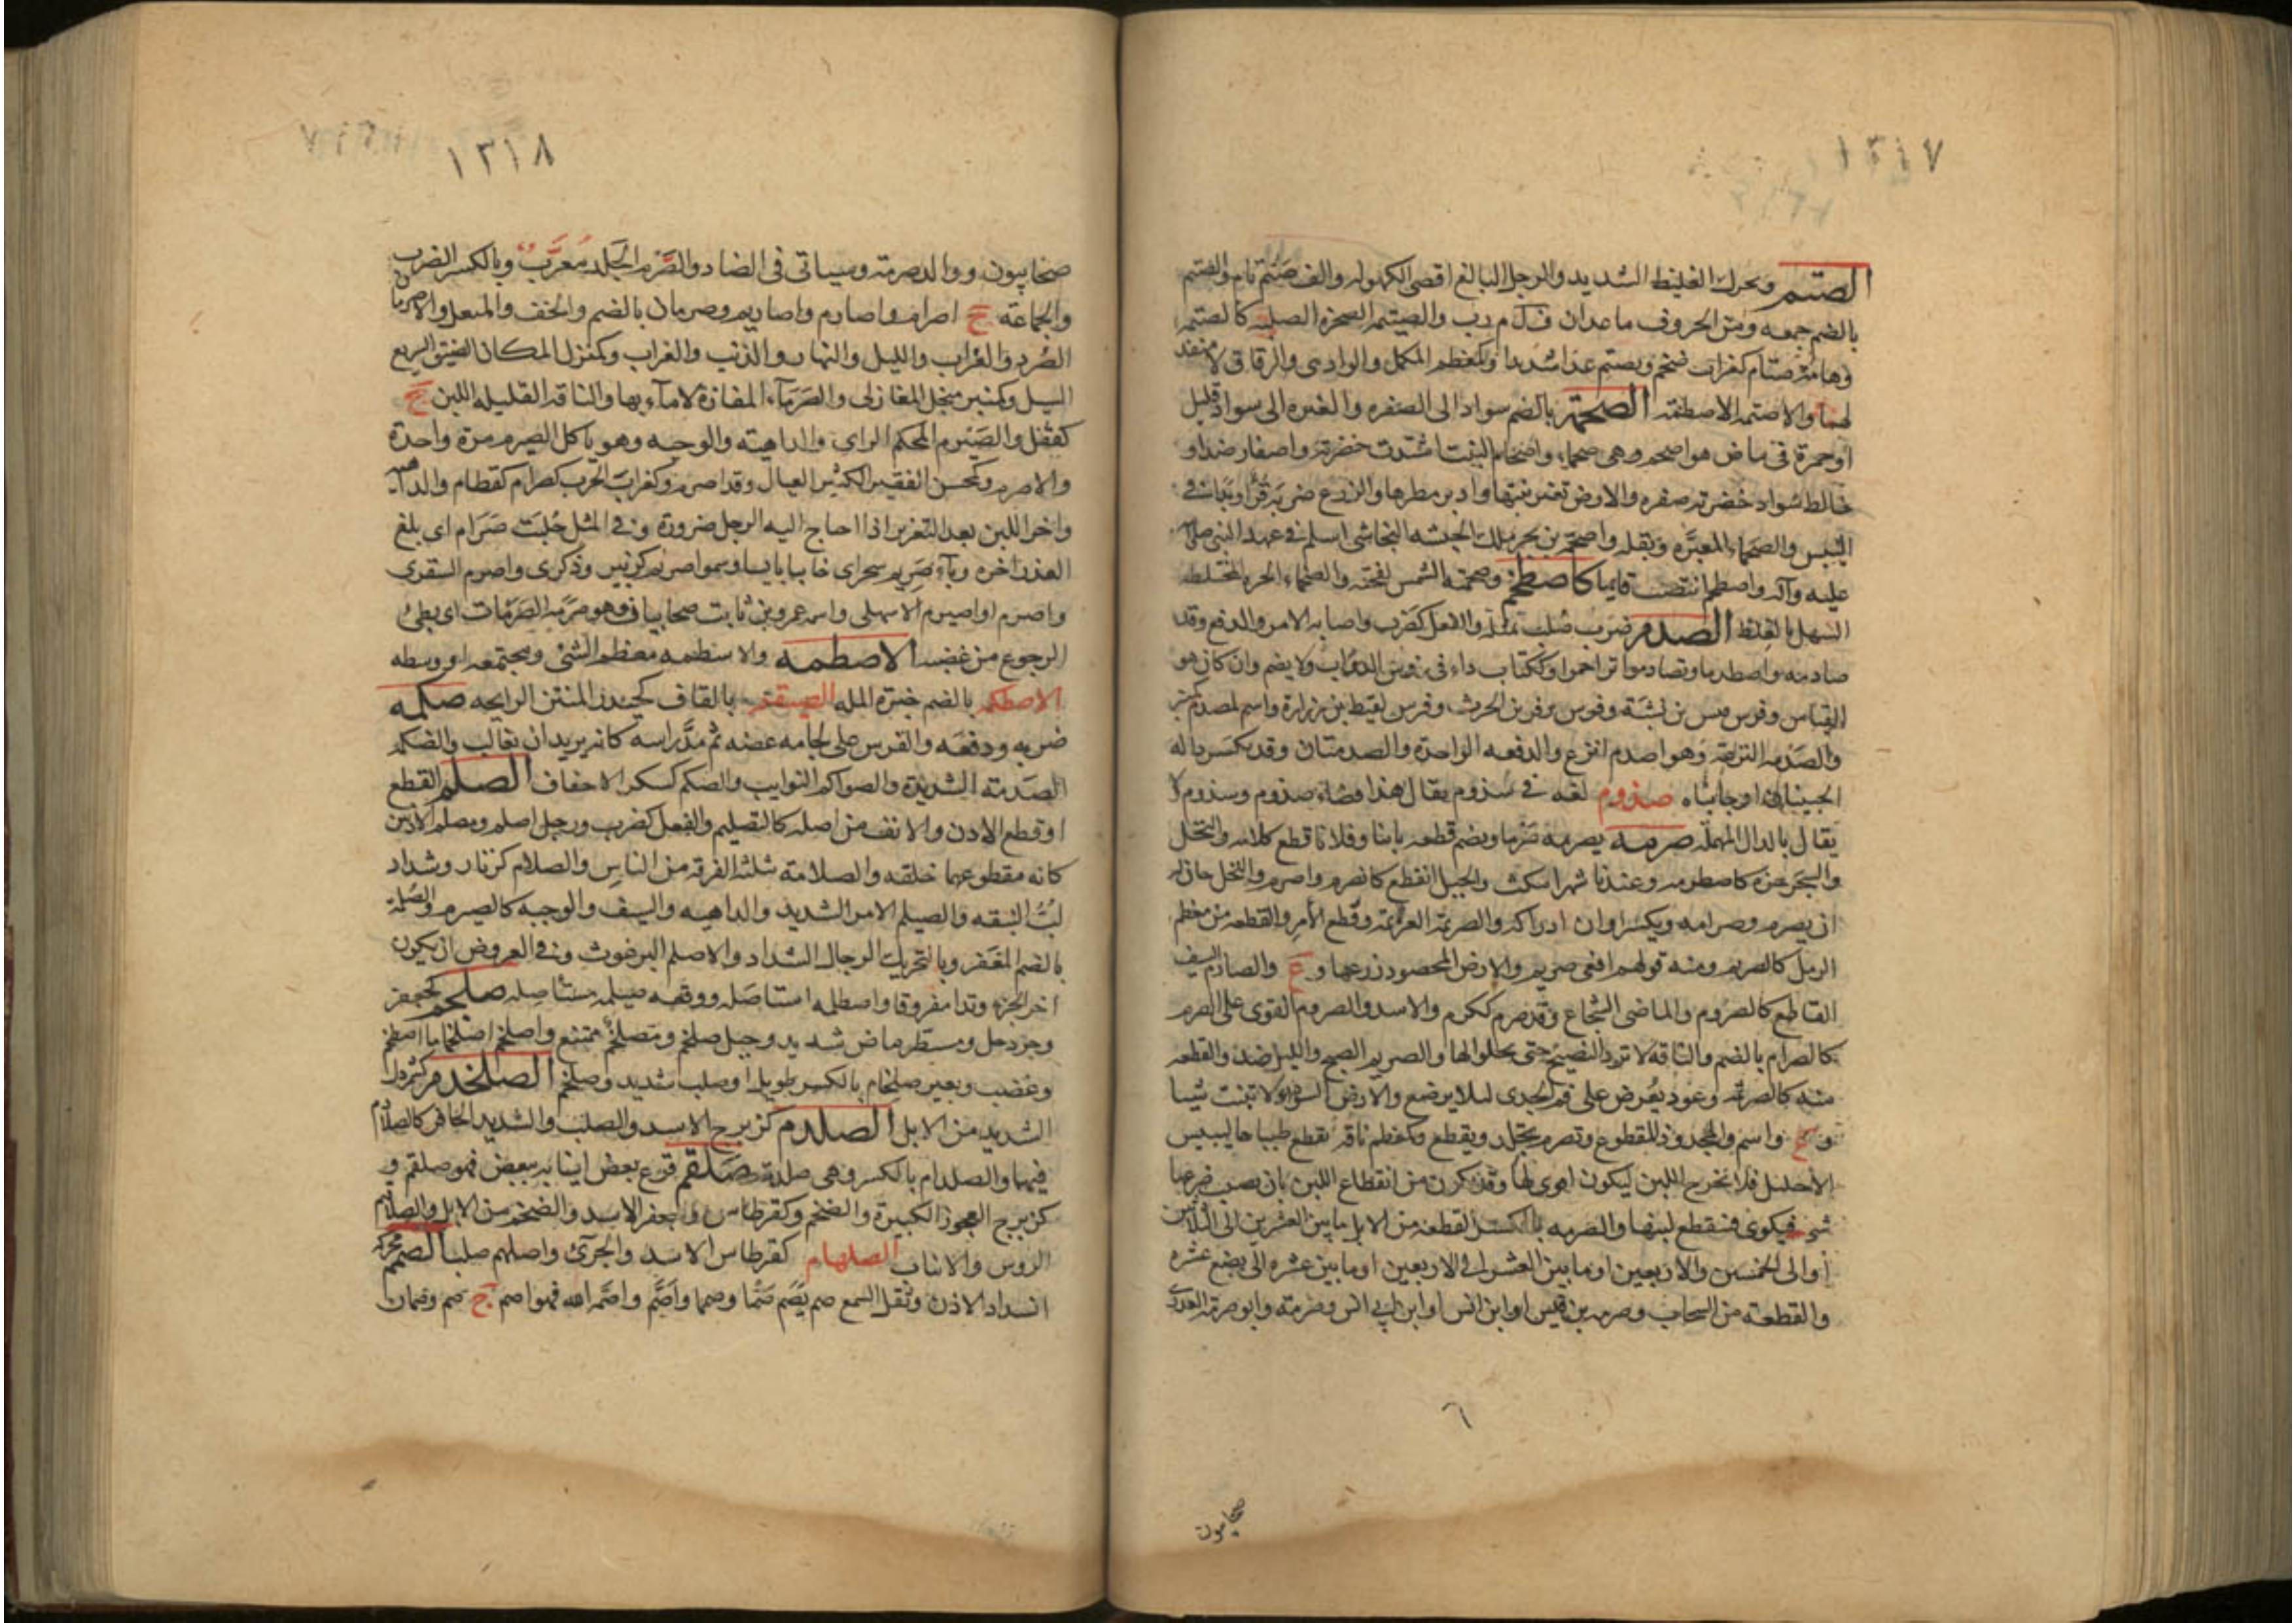 ١٣١٧
الصتم ويحرك الغليظ الشديد والرجل البالغ اقصى الكهوله والف صَتْم تام والصتم
بالضم جمعه ومن الحروف ماعدان ف ل م ر ب والصيتم الصخرة الصلبة كالصتمه
وهامة صتام كغراب ضخم ويصتم عدا شديدا وكمعظم المكمل والوادى والزقاق لا منفذ
لهما والاصتمه الاصطمه الصحمة بالضم سواد الى الصفره والغبره الى سواد قليل
اوحمرة فى بياض هو اصحم وهى صحماء واصحام النبت اشتدت خضرته واصفار ضد او
خالط سواد خضرته صفره والارض تغير نبتها وادبر مطرها والزرع ضربه قر او بدا فى
اليبس والصحماء المغبرّه وبقله واصحم بن بحر ملك الحبشه النجاشى اسلم فى عهد النبى صلى الله
عليه وآله واصطخم انتصب قايما كاصطخم وصخمته الشمس لفحته والصخماء الحره المختلطه
السهل بالغلظ الصدم ضرب صلب بمثله والفعل كضرب واصابه الامر والدفع وقد
صادمه واصطدما وتصادموا تزاحموا وككتاب داء فى رؤس الدواب ولا يضم وان كان هو
القياس وفرس قيس بن نشبة وفرس زفر بن الحرث وفرس لقيط بن زرارة واسم لمصدم كمنبر
والصدمه النزعة وهو اصدم انزع والدفعه الواحدة والصدمتان وقد تكسر داله
الجبينان او جانباه صذوم لغه فى سذوم يقال هذا قضاء صذوم وسذوم لا
يقال بالدال المهمله صرمه يصرمه صَرما ويضم قطعه باينا وفلانا قطع كلامه والنخل
والشجر جزه كاصطرمه وعندنا شهرا مكث والحبل انقطع كانصرم واصرم والنخل حان له
ان يصرم وصرامه ويكسر اوان ادراكه والصريمة العزيمة وقطع الأمر والقطعه من معظم
الرمل كالصريم ومنه قولهم افعى صريم والارض المحصود زرعها و ع والصارم السيف
القاطع كالصروم والماضى الشجاع وقد صرم ككرم والاسد والصروم القوى على الصرم
كالصرام بالضم والناقة لا ترد النضيح حتى يخلو لها والصريم الصبح والليل ضد والقطعه
منه كالصريمة وعود يُعرض على فم الجدى ليلا يرضع والارض السوداء لا تنبت شيا
و ع واسم والمجدوذ المقطوع وتصرم تجلد وتقطع وكمعظم ناقة يقطع طبياها ليبس
الاحليل فلا يخرج اللبن ليكون اقوى لها وقد يكون من انقطاع اللبن بان يصيب ضرعها
شئ فيكوى فينقطع لبنها والصرمه بالكسر القطعه من الابل مابين العشرين الى الثلاثين
او الى الخمسين والاربعين او مابين العشره الى الاربعين او مابين عشره الى بضع عشره
والقطعة من السحاب وصرمه بن قيس او ابن انس او ابن ابى انس وصرمة وابو صرمة العذرى
٦
صحابيون
١٣١٨
صحابيون ووالد صرمة وسياتى فى الضاد والصَّرم الجَلد مُعرَّبٌ وبالكسر الضرب
والجماعة ج اصرام واصارم واصاريم وصرمان بالضم والخف والمنعل والاصرمان
الصُّرد والغراب والليل والنهار والذئب والغراب وكمنزل المكان الضيق السريع
السيل وكمنبر منجل المغازلى والصَرماء المفازة لا ماء بها والناقة القليله اللبن ج
كقفل والصَيْرم المحكم الراى والداهية والوجبه وهو ياكل الصيرم مرة واحدة
والاصرم وكمحسن الفقير الكثير العيال وقد اصرم وكغراب الحرب كصرام كقطام والداهيه
واخر اللبن بعد التغزير اذا احتاج اليه الرجل ضرورة وفى المثل حُلبَت صَرَام اى بلغ
العذر اخره وجاء صريم سحر اى خايبا يايسا وسموا صريم كزبير وذكرى واصرم الشقرى
واصرم او اصيرم الاشهلى واسمه عمرو بن ثابت صحابيان وهو صرمة الصرمات اى بطئ
الرجوع من غضبه الاصطمه والاسطمه معظم الشئ ومجتمعه او وسطه
الاصطكمه بالضم خبزة المله الصيقم بالقاف كحيدر المنتن الرايحه صكمه
ضربه ودفعه والفرس على لجامه عضه ثم مدّ راسه كانه يريد ان يغالب والصكمه
الصدمة الشديدة والصواكم النوايب والصكم كسكر الاخفاف الصلم القطع
اوقطع الاذن والانف من اصله كالتصليم والفعل كضرب ورجل اصلم ومصلم الاذنين
كانه مقطوعهما خلقه والصلامة مثلثه الفرقه من الناس والصلام كزنار وشداد
لبّ النبقه والصيلم الامر الشديد والداهيه والسيف والوجبه كالصيرم والصلمة
بالضم المغفر وبالتحريك الرجال الشداد والاصلم البرغوث وفى العروض ان يكون
اخر الجزء وتدا مفروقا واصطلمه استاصله ووقعه صيلمه مستأصله صلخم كجعفر
وجردحل ومسطر ماض شديد وجبل صلخم ومصلخم ممتنع واصلخم اصلخاما اصطخم
وغضب وبعير صلخام بالكسر طويل او صلب شديد وصلخم الصلخدم كشمردل
الشديد من الابل الصلدم كزبرج الاسد والصلب والشديد الحافر كالصلادم
فيهما والصلدام بالكسر وهى صلدمة صَلقم قرع بعض انيابه ببعض فهو صلقم و
كزبرج العجوز الكبيرة والضخم وكقرطاس وجعفر الاسد والضخم من الابل والصلاقم
الروس والانياب الصلهام كقرطاس الاسد والجرئ واصلهم صلب الصمم محركة
انسداد الاذن وثقل السمع صم يصم صَمّا وصمما واَصَمَّ واصمه الله فهو اصم ج صم وصمان